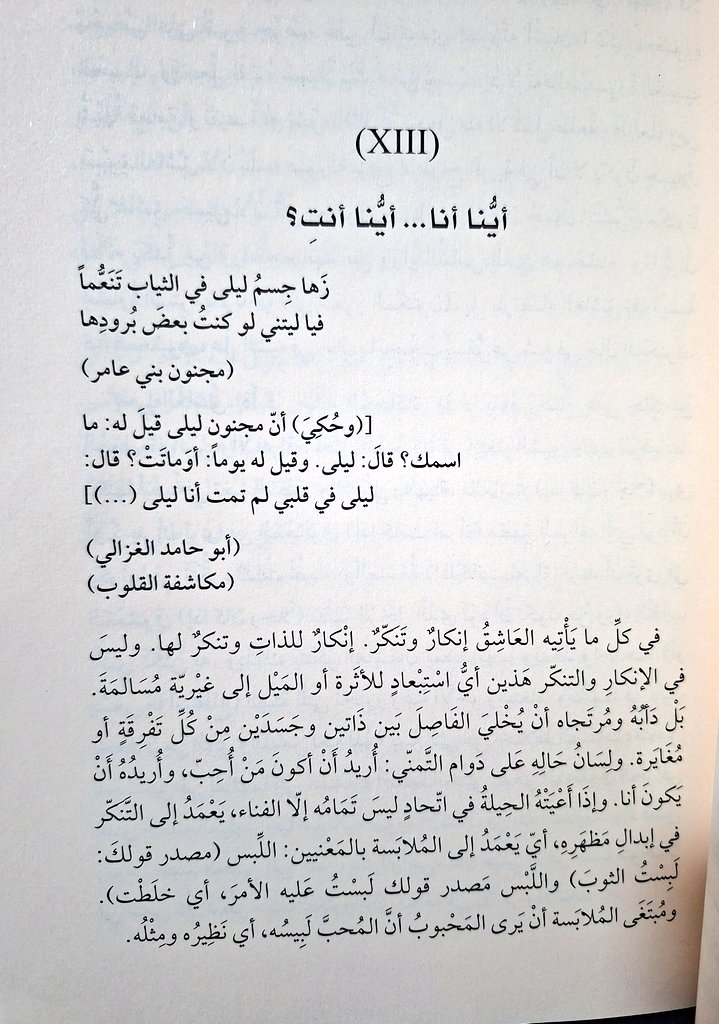 (XIII)
أيُّنا أنا... أيُّنا أنتِ؟
زَها جِسمُ ليلى في الثياب تَنَعُّماً
فيا ليتني لو كنتُ بعضَ بُرودِها
(مجنون بني عامر)
[(وحُكِيَ) أنّ مجنون ليلى قيلَ له: ما
اسمك؟ قالَ: ليلى. وقيل له يوماً: أوَماتَتْ؟ قال:
ليلى في قلبي لم تمت أنا ليلى (...)]
(أبو حامد الغزالي)
(مكاشفة القلوب)
في كلِّ ما يَأْتِيه العَاشِقُ إنكارٌ وتَنَكّرٌ. إنْكارٌ للذاتِ وتنكرٌ لها. وليسَ
في الإنكارِ والتنكّر هَذين أيُّ اسْتِبْعادٍ للأثَرة أو المَيْل إلى غيْريّة مُسَالمَة.
بَلْ دَأبُهُ ومُرتَجاه أنْ يُخْليَ الفَاصِلَ بَين ذَاتين وجَسَدَيْن مِنْ كُلِّ تَفْرِقَةٍ أو
مُغَايَرة. ولِسَانُ حَالِهِ عَلى دَوام التَّمنّي: أُريدُ أَنْ أكونَ مَنْ أُحِبّ، وأُريدُهُ أَنْ
يَكونَ أنا. وإذَا أَعْيَتْهُ الحِيلةُ في اتّحادٍ ليسَ تَمَامُه إلّا الفناء، يَعْمَدُ إلى التَّنَكّر
في إبدالِ مَظهَرِهِ، أيّ يَعْمَدُ إلى المُلابَسة بالمَعْنيين: اللِّبس (مصدر قولكَ:
لَبِسْتُ الثوبَ) واللَّبْس مَصدر قولك لَبسْتُ عَليه الأمرَ، أي خلَطْت).
ومُبتَغَى المُلابَسة أنْ يَرى المَحْبوبُ أنَّ المُحبَّ لَبِيسُه، أي نَظِيرُه ومِثْلُه.